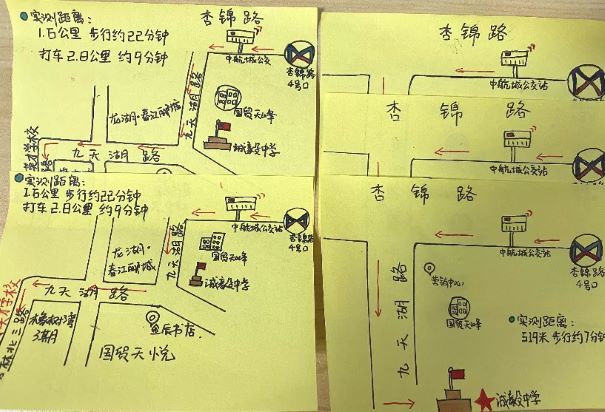 杏锦路
实测距离:
1.6公里 步行约22分钟
打车2.8公里 约9分钟
中航城公交
杏锦路
4号口
龙湖·春江郦城
九天湖路
国贸天峰
诚毅中学
九天湖路
杏锦路
中航城公交站
杏锦路
中航城公交站
实测距离:
1.6公里 步行约22分钟
打车2.8公里 约9分钟
中航城公交站
杏锦路
4号口
龙湖·
春江郦城
九天湖路
国贸天峰
诚毅中学
九天湖路
国贸天悦
杏锦路
中航城公交站
杏锦路
4号口
九天湖路
国贸天峰
实测距离:
519米 步行约7分钟
诚毅中学